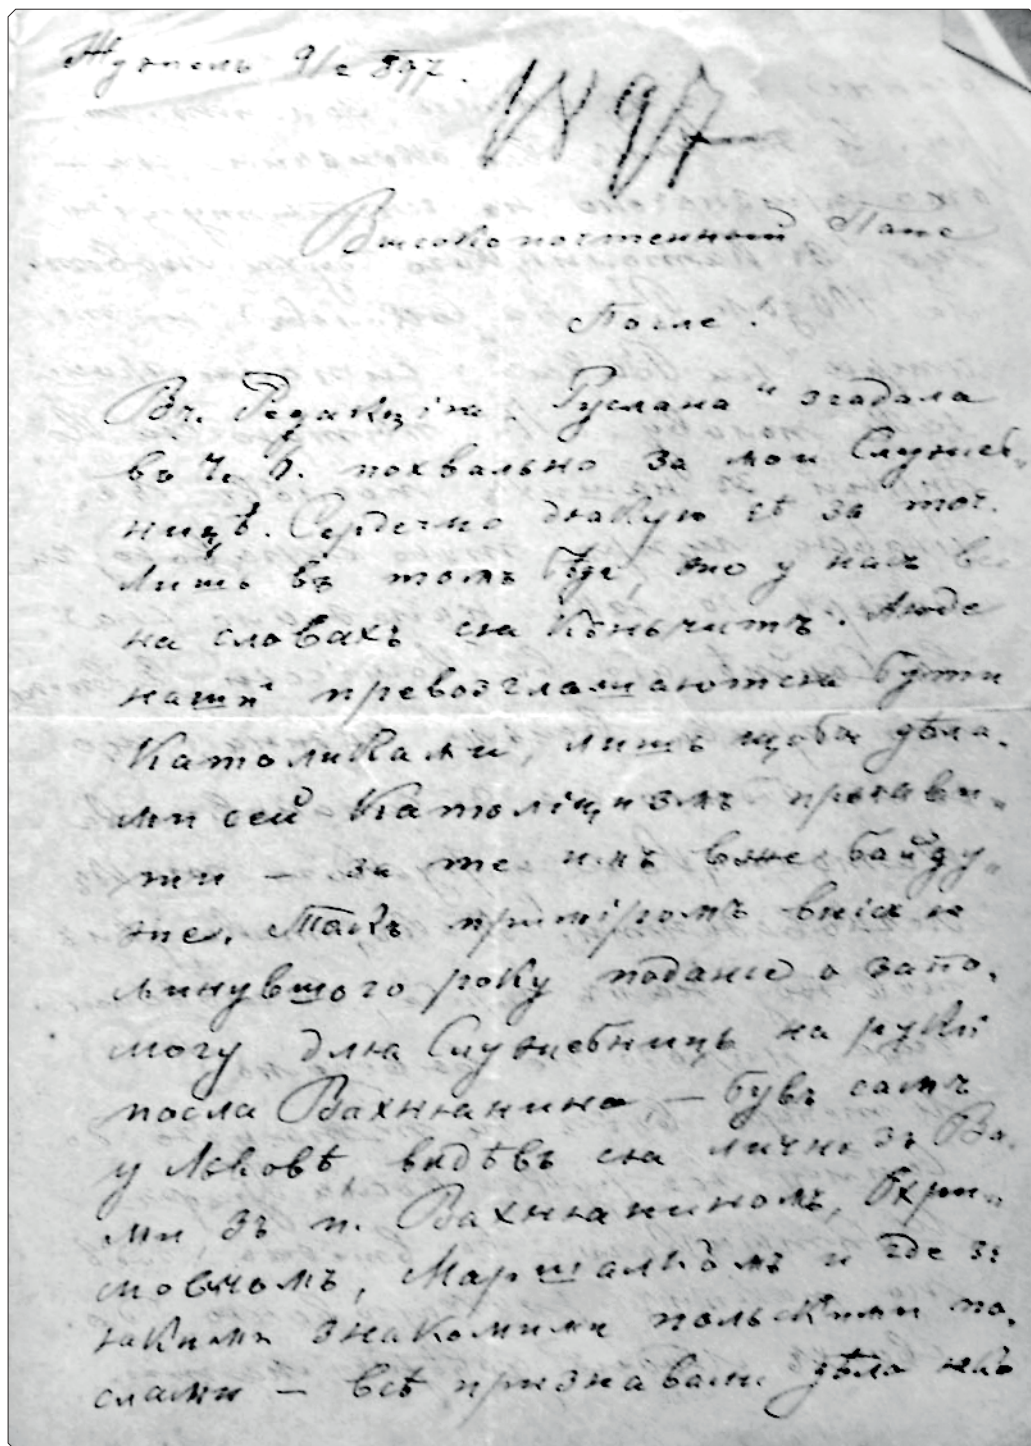 Жужель 9/2 897.
1897
Высокопочтенный Пане
После!
Вч. Редакція „Руслана" згадала
въ Ч. похвально за мои Служеб-
ницѣ. Сердечно дякую єѣ за тоє.
Лишь въ томъ бѣда, що у насъ все
на словахъ ся кôньчитъ. Люде
нашѝ превозглашаются бути
Католиками, лишь щобы дѣла-
ми сей Католіцизмъ проявы-
ти — за те имъ вже байду-
же. Такъ приміромъ внісъ я
минувшого року поданіе о запо-
могу для Служебниць на руки
посла Вахнянина — бувъ самъ
у Львовѣ, видѣвъ ся лично зъ Ва-
ми, зъ п. Вахняниномъ, Охри-
мовичомъ, Маршалкомъ и где зъ
якими знакомими польскими по-
слами — всѣ признавали дѣло яко